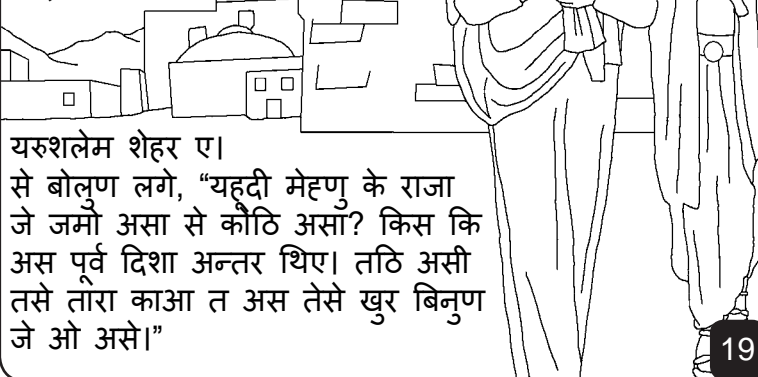 यरुशलेम शेहर ए।
से बोलुण लगे, “यहूदी मेह्णु के राजा
जे जमो असा से कोठि असा? किस कि
अस पूर्व दिशा अन्तर थिए। तठि असी
तसे तारा काआ त अस तेसे खुर बिनुण
जे ओ असे।”
19